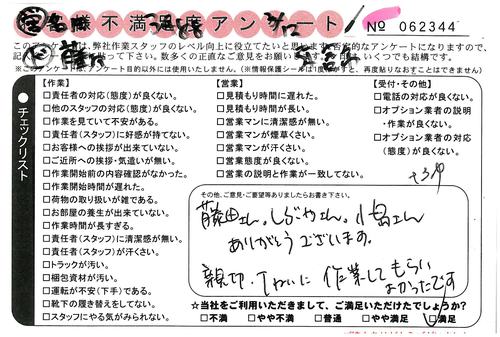 お客様不満度アンケート
№ 062344
このアンケートは、弊社作業スタッフのレベル向上に役立てたいと思います。否定的なアンケートになりますので、
記 下さい。数多くの正直なご意見をお願い いくつでも結構です。
(※このアンケートは、アンケート目的以外には使用いたしません。(※情報保護シールは1度 すと、再度貼りなおすことはできません)
●チェックリスト
【作業】
□責任者の対応(態度)が良くない。
□他のスタッフの対応(態度)が良くない。
□作業を見ていて不安がある。
□責任者(スタッフ)に好感が持てない。
□お客様への挨拶が出来ていない。
□ご近所への挨拶・気遣いが無い。
□作業開始前の内容確認がなかった。
□作業開始時間が遅れた。
□荷物の取り扱いが雑である。
□お部屋の養生が出来ていない。
□作業時間が長すぎる。
□責任者(スタッフ)に清潔感が無い。
□責任者(スタッフ)が汗くさい。
□トラックが汚い。
□梱包資材が汚い。
□運転が不安(下手)である。
□靴下の履き替えをしてない。
□スタッフにやる気がみられない。
【営業】
□見積もり時間に遅れた。
□見積もり時間が長い。
□営業マンに清潔感が無い。
□営業マンが煙草くさい。
□営業マンが汗くさい。
□営業態度が良くない。
□営業の説明と作業が一致してない。
【受付・その他】
□電話の対応が良くない。
□オプション業者の説明
・作業が良くない。
□オプション業者の対応
(態度)が良くない。
その他、ご意見・ご要望等ありましたらお書き下さい。
藤田さん、しぶやさん、小島さん
ありがとうございます。
親切、ていねいに作業してもらい
よかったです
☆当社をご利用いただきまして、ご満足いただけたでしょうか?
□不満 □やや不満 □普通 □やや満足 ☑満足